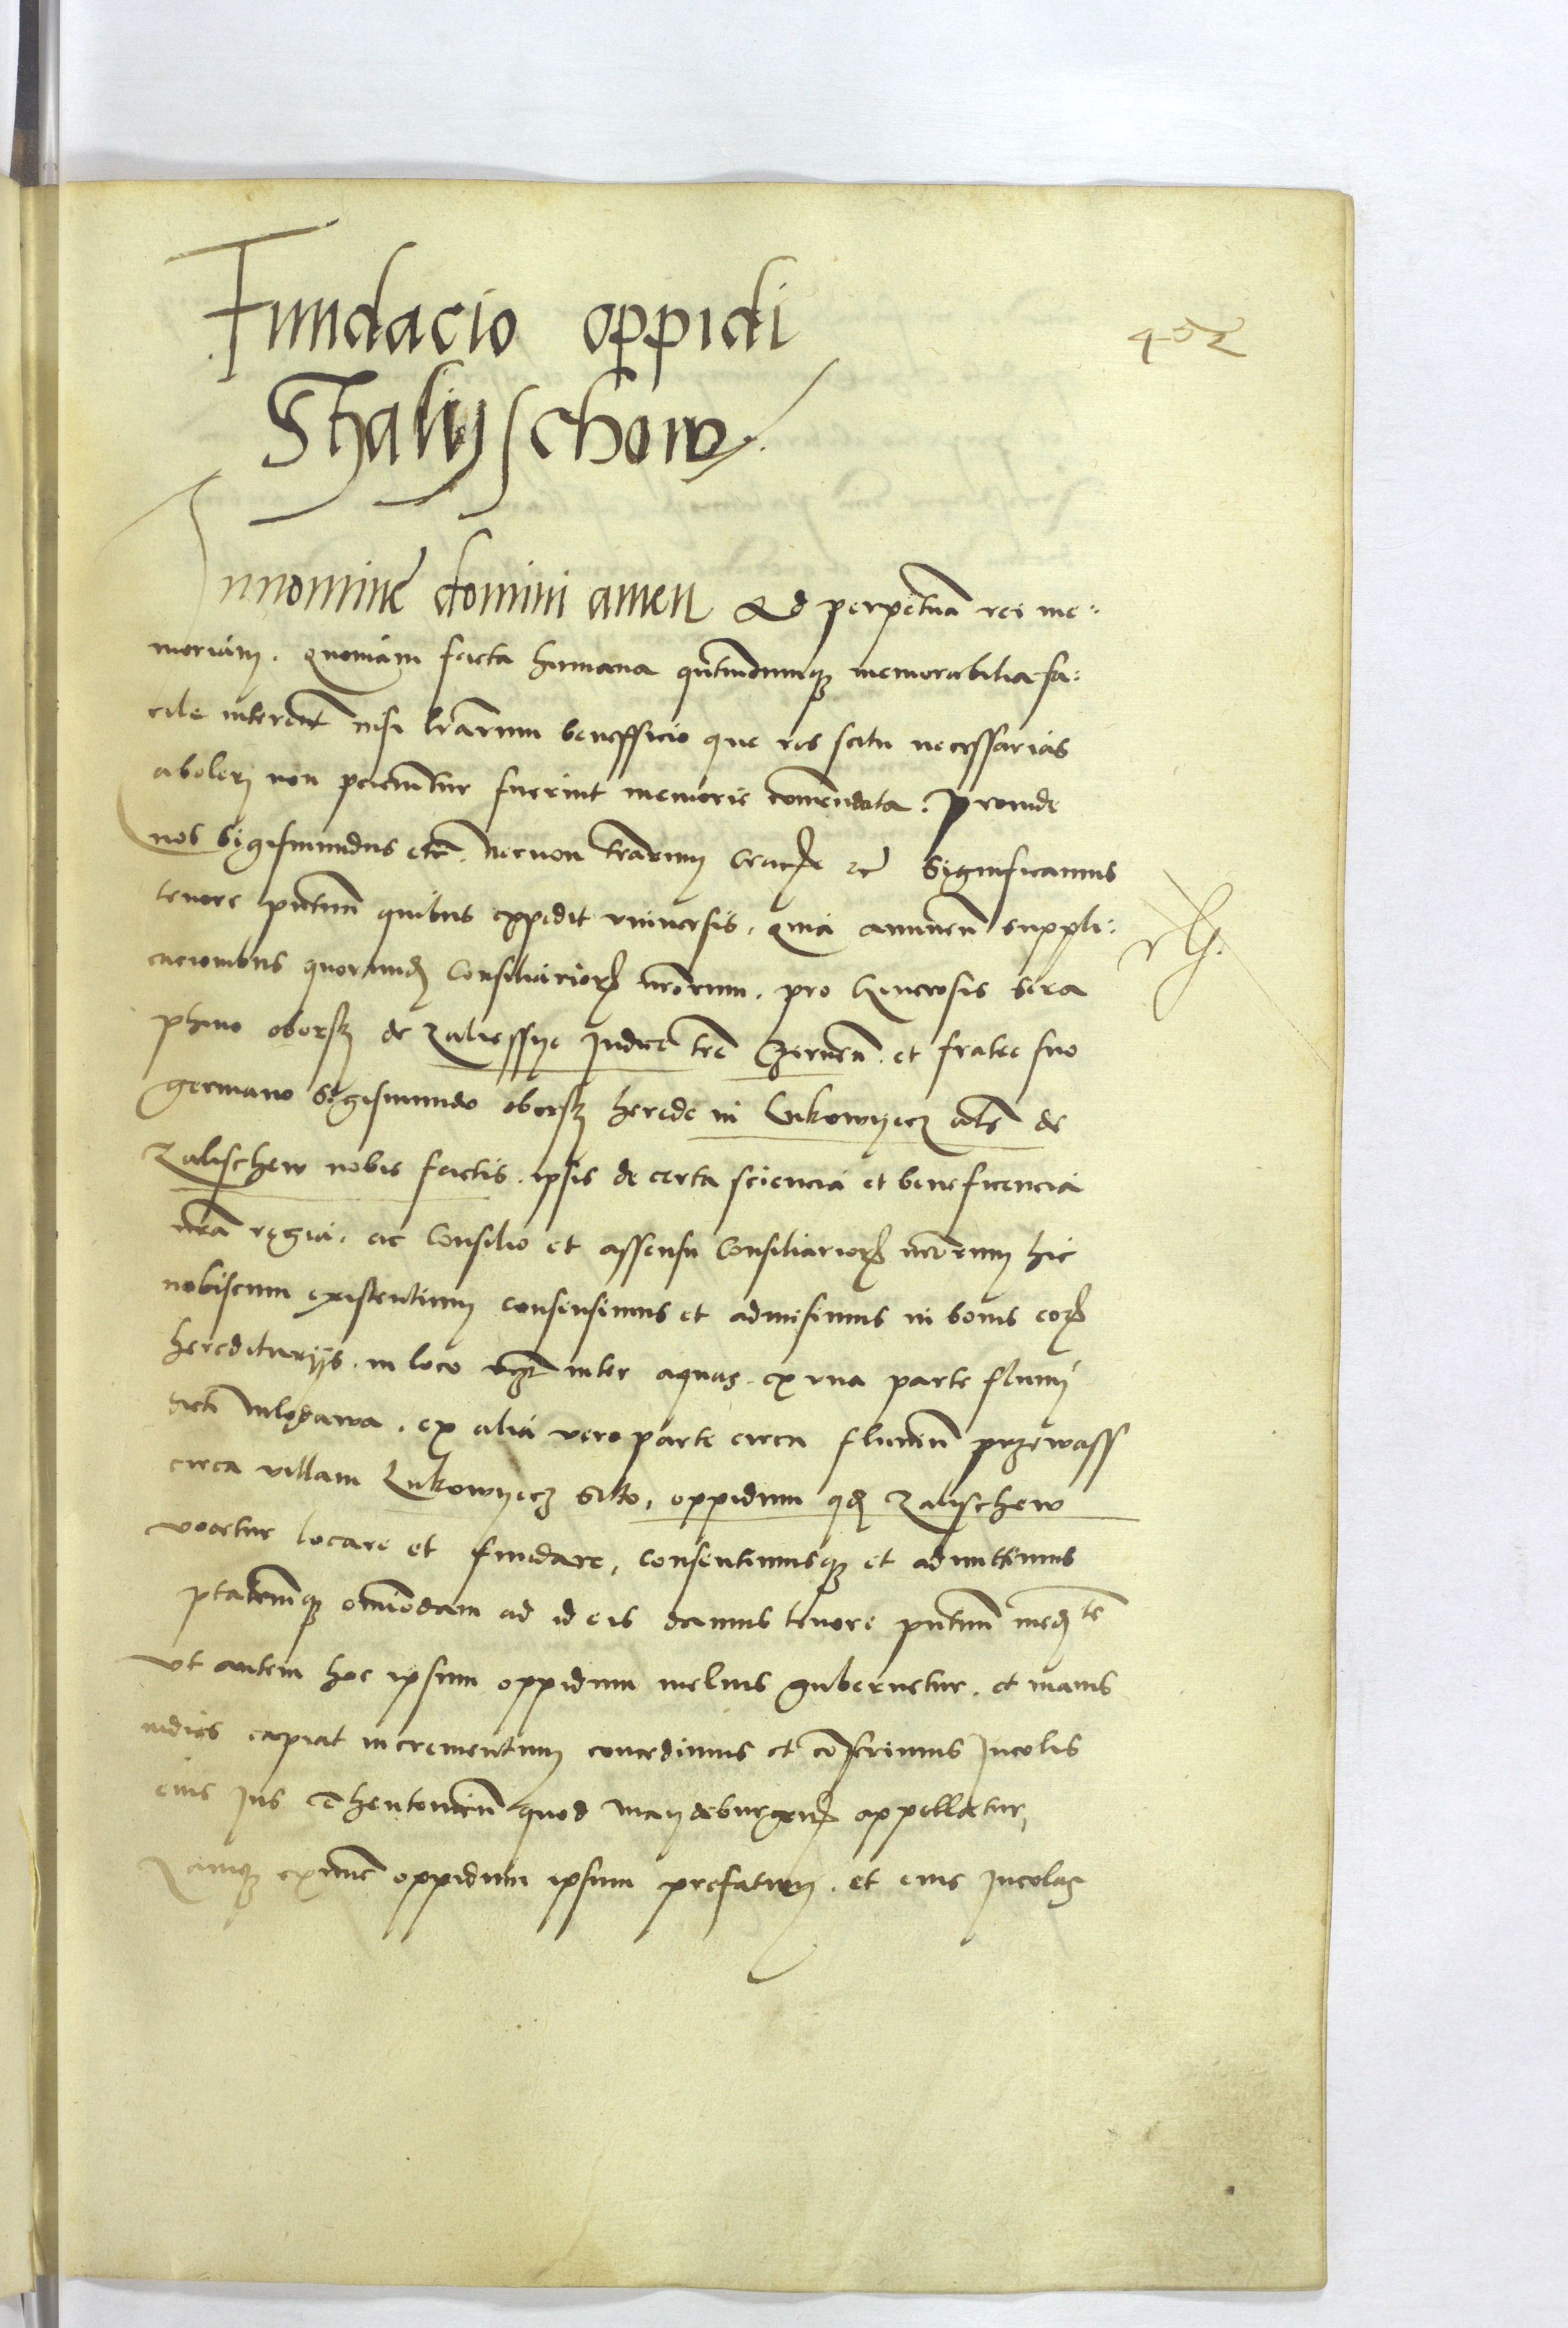 Fundacio oppidi
402
Shalijschow
Innomine domini amen Ad perpetuã rei me:
moriam. Quoniam facta humana qũtũcumqȝ memorabilia fa:
cile intereũt nisi lrãrum beneffficio que res scitu necessarias
aboleri non paciũtur fuerint memorie comẽndata. Proinde
nos Sigismundus etc. Necnon trãrum Crac etc Significamus
tenore pñtium quibus expedit vniversis. quia annuen suppli:
cacionibus quorund Consiliarior nrõrum. pro Generosis Sera
phino oborsȝ de Zaliessye Judice trẽ Chelmen. et fratre suo
germano Sigismundo oborsȝ herede in Lukowyecz als de
Zalischew nobis factis. ipsis de certa sciencia et beneficencia
nrã regia. ac Consilio et assensu Consiliarior nrõrum hic
nobiscum existentium consensimus et admisimus in bonis eor
hereditarijs. in loco inter aquas. ex vna parte flumij
dicti Wlodawa. ex alia vero parte circa flumen przewass
circa villam Lukowyecz sito, oppidum qd Zalischew
vocetur locare et fundare, consentimusqȝ et admittimus
ptatemqȝ omĩodam ad id eis damus tenore pñtium med te
Vt autem hoc ipsum oppidum melius gubernetur. et maius
indies capiat incrementum concedimus et conferimus Incolis
eius Jus thentonicũ quod maydeburgen appellatur,
Zamqȝ exnunc oppidum ipsum prefatum. et eius Incolas